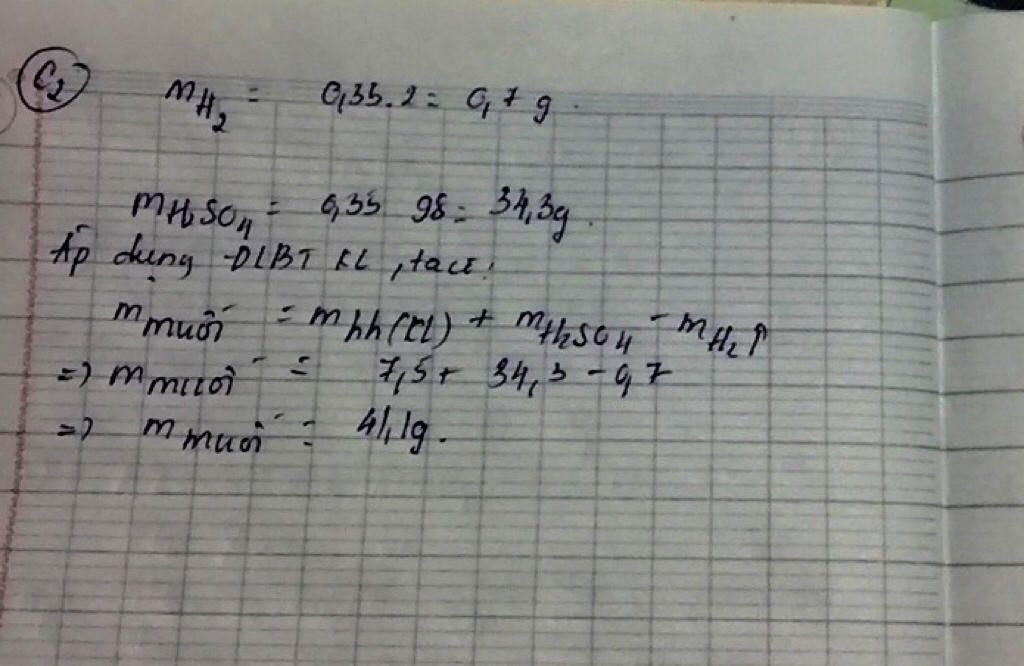 C2 mH2 = 0,35.2 = 0,7 g.
mH2SO4 = 0,35 98 = 34,3g.
Áp dụng ĐLBT KL, ta có:
m muối = mhh(KL) + mH2SO4 - mH2↑
=> m muối = 7,5 + 34,3 - 0,7
=> m muối = 41,1g.